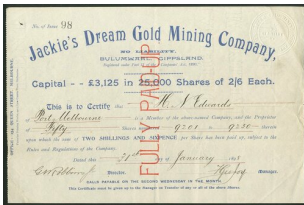 No. of Scrip 98
Jackie's Dream Gold Mining Company,
NO LIABILITY.
BULUMWAAL, GIPPSLAND.
Capital - - £3,125 in 25,000 Shares of 2/6 Each.
This is to Certify that H. J. Edwards
of Port Melbourne is a Member of the above-named Company, and the Proprietor
of Fifty Shares 9201 9250
upon which the sum of TWO SHILLINGS AND SIXPENCE per Share has been paid up, subject to the
Rules and Regulations of the Company.
Dated this 31st January
Director. Manager.
CALLS PAYABLE ON THE SECOND WEDNESDAY IN THE MONTH.
This Certificate must be given up to the Manager on Transfer of any or all of the above Shares.
FULLY PAID-UP